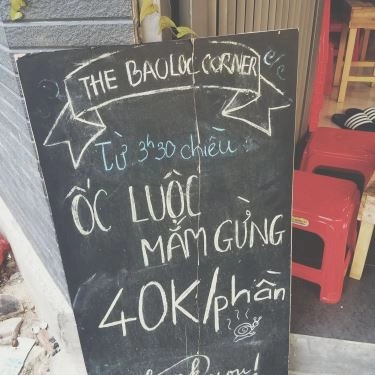 THE BAOLOC CORNER
Từ 3h30 chiều
ỐC LUỘC
MẮM GỪNG
40K/phần